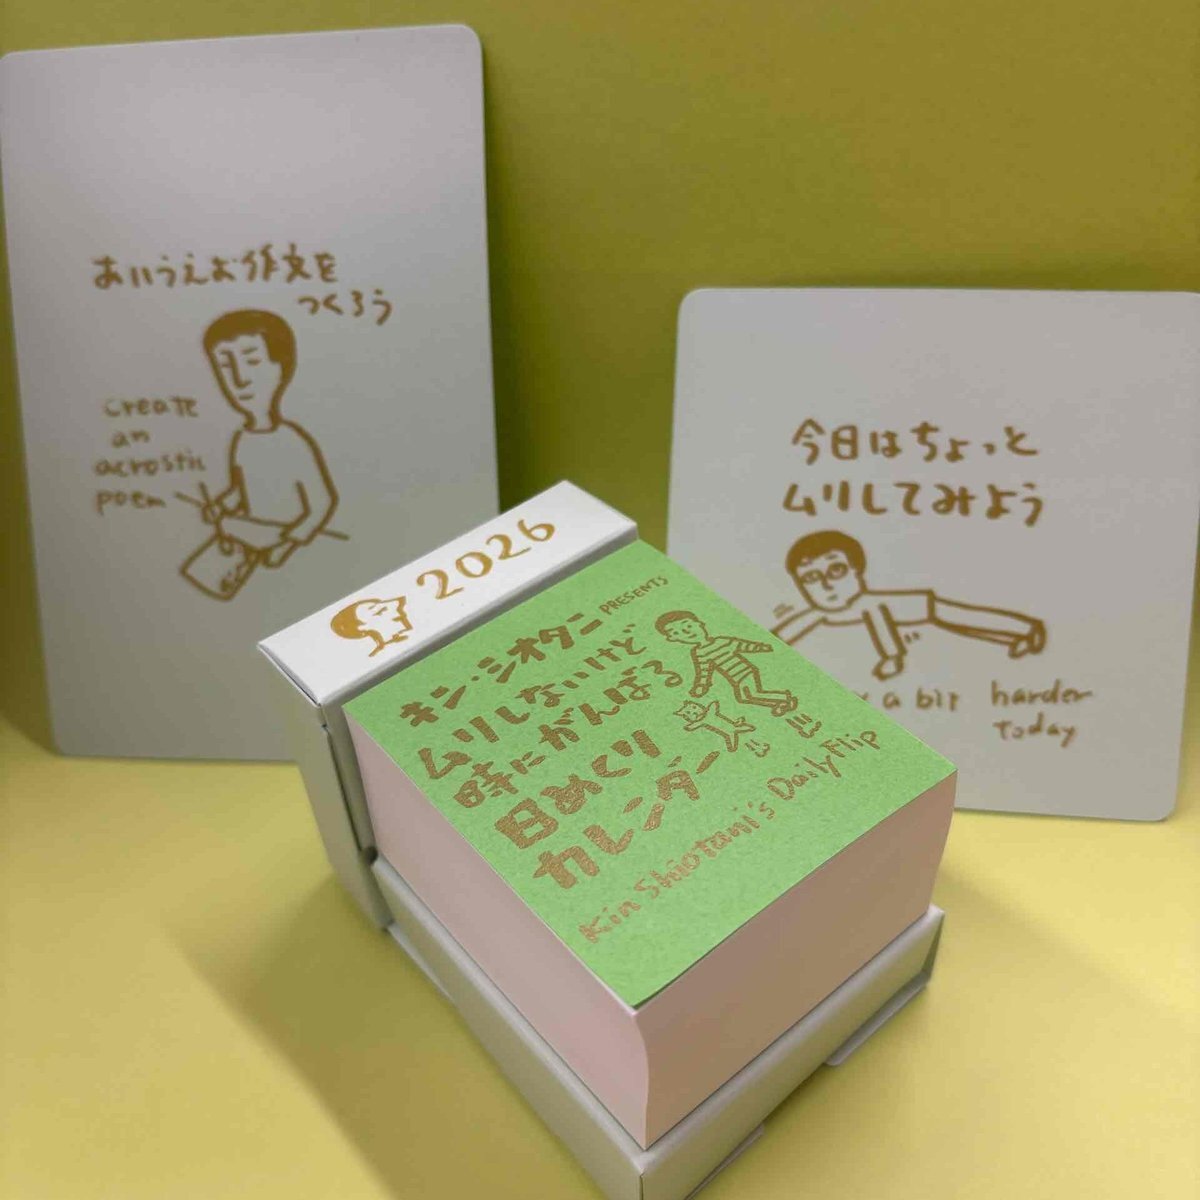 あいうえお作文を
つくろう
create
an
acrostic
poem
今日はちょっと
ムリしてみよう
a bit harder
today
2026
キン・シオタニ PRESENTS
ムリしないけど
時にがんばる
日めくり
カレンダー
Kin Shiotani's Daily Flip